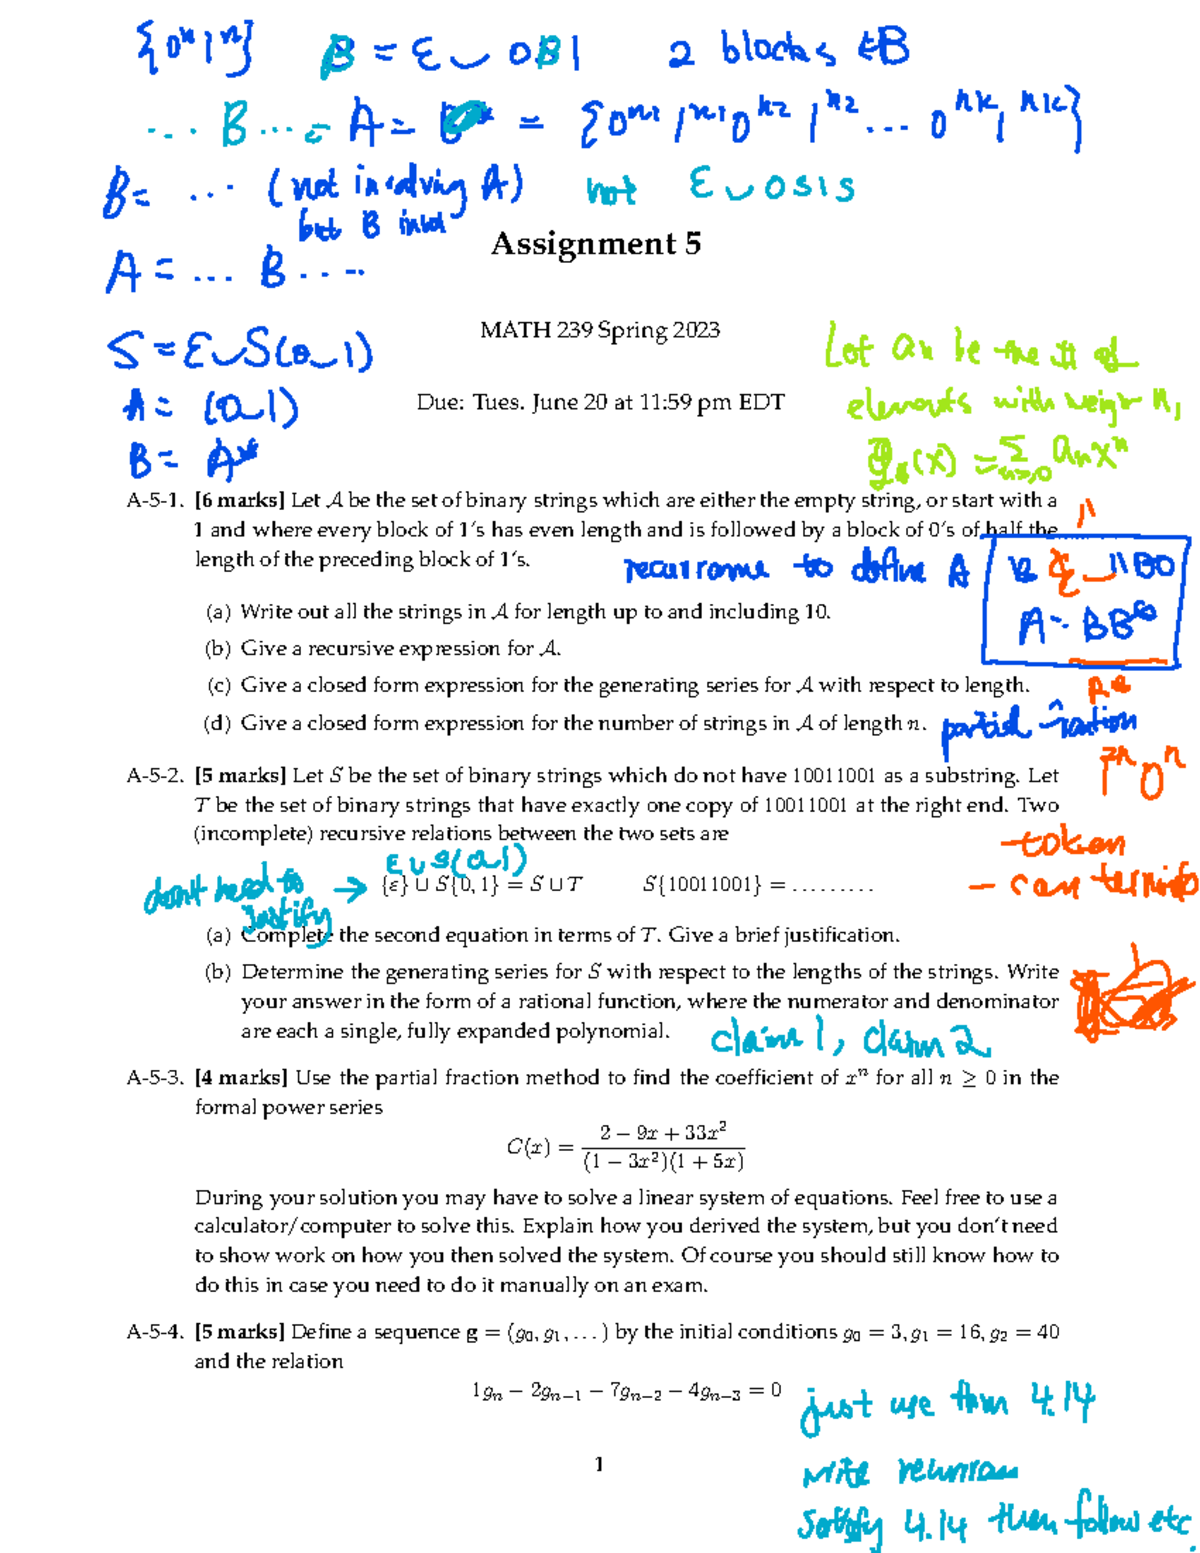 {0ⁿ1ⁿ} B = ε ∪ 0B1 2 blocks ∈B
... B ... = A = = {0ⁿ¹ 1ⁿ¹ 0ⁿ² 1ⁿ² ... 0ⁿᵏ 1ⁿᵏ}
B = ... (not involving A) not ε ∪ 0S1S
but B
A = ... B ....
Assignment 5
MATH 239 Spring 2023
S = ε ∪ S(0 ∪ 1)
A = (0 ∪ 1)
B = A*
Due: Tues. June 20 at 11:59 pm EDT
Let an be the # of
elements with weight n,
(x) = Σ n≥0 aₙxⁿ
A-5-1. [6 marks] Let 𝒜 be the set of binary strings which are either the empty string, or start with a
1 and where every block of 1's has even length and is followed by a block of 0's of half the
length of the preceding block of 1's.
recurrence to define A
∪ 11B0
A = BB
(a) Write out all the strings in 𝒜 for length up to and including 10.
(b) Give a recursive expression for 𝒜.
(c) Give a closed form expression for the generating series for 𝒜 with respect to length.
(d) Give a closed form expression for the number of strings in 𝒜 of length n.
partial
A-5-2. [5 marks] Let S be the set of binary strings which do not have 10011001 as a substring. Let
T be the set of binary strings that have exactly one copy of 10011001 at the right end. Two
(incomplete) recursive relations between the two sets are
1ⁿ0ⁿ
- token
- can
ε ∪ S(0 ∪ 1)
don't need to justify →
{ε} ∪ S{0, 1} = S ∪ T S{10011001} = .........
(a) Complete the second equation in terms of T. Give a brief justification.
(b) Determine the generating series for S with respect to the lengths of the strings. Write
your answer in the form of a rational function, where the numerator and denominator
are each a single, fully expanded polynomial.
claim 1, claim 2
A-5-3. [4 marks] Use the partial fraction method to find the coefficient of xⁿ for all n ≥ 0 in the
formal power series
C(x) = (2 − 9x + 33x²) / ((1 − 3x²)(1 + 5x))
During your solution you may have to solve a linear system of equations. Feel free to use a
calculator/computer to solve this. Explain how you derived the system, but you don't need
to show work on how you then solved the system. Of course you should still know how to
do this in case you need to do it manually on an exam.
A-5-4. [5 marks] Define a sequence g = (g₀, g₁, . . . ) by the initial conditions g₀ = 3, g₁ = 16, g₂ = 40
and the relation
1gₙ − 2gₙ₋₁ − 7gₙ₋₂ − 4gₙ₋₃ = 0
just use thm 4.14
write
satisfy 4.14 then follow etc.
1